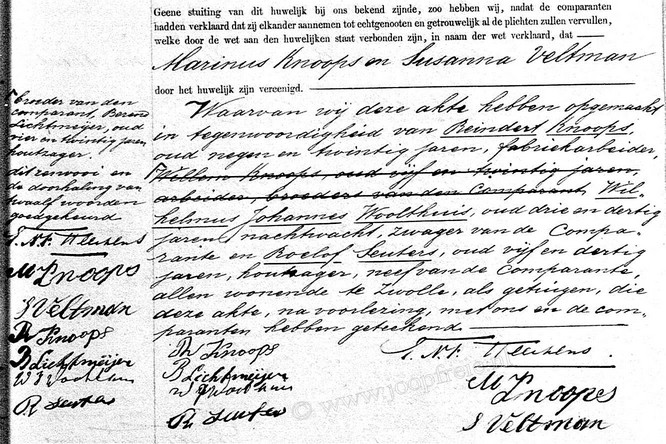 Geene stuiting van dit huwelijk bij ons bekend zijnde, zoo hebben wij, nadat de comparanten
hadden verklaard dat zij elkander aannemen tot echtgenooten en getrouwelijk al de plichten zullen vervullen,
welke door de wet aan den huwelijken staat verbonden zijn, in naam der wet verklaard, dat
Marinus Knoops en Susanna Veltman
door het huwelijk zijn vereenigd.
Waarvan wij deze akte hebben opgemaakt
in tegenwoordigheid van Reindert Knoops,
oud negen en twintig jaren, fabriekarbeider,
Willem Knoops, oud vijf en twintig jaren,
arbeider, broeders van den Comparant, Wil-
helmus Johannes Woolthuis, oud drie en dertig
jaren, nachtwacht, zwager van de Compa-
rante en Roelof Seuters, oud vijf en dertig
jaren, houtzager, neef van de Comparante,
allen wonende te Zwolle, als getuigen, die
deze akte, na voorlezing, met ons en de com-
paranten hebben geteekend
broeder van den
comparant, Barend
Lichtmeijer, oud
vier en twintig jaren
houtzager.
dit renvooi en
de doorhaling van
twaalf woorden
goedgekeurd
M Knoops
S Veltman
R Knoops
B Lichtmeijer
R Seuters
R Knoops
B Lichtmeijer
R Seuters
M Knoops
S Veltman